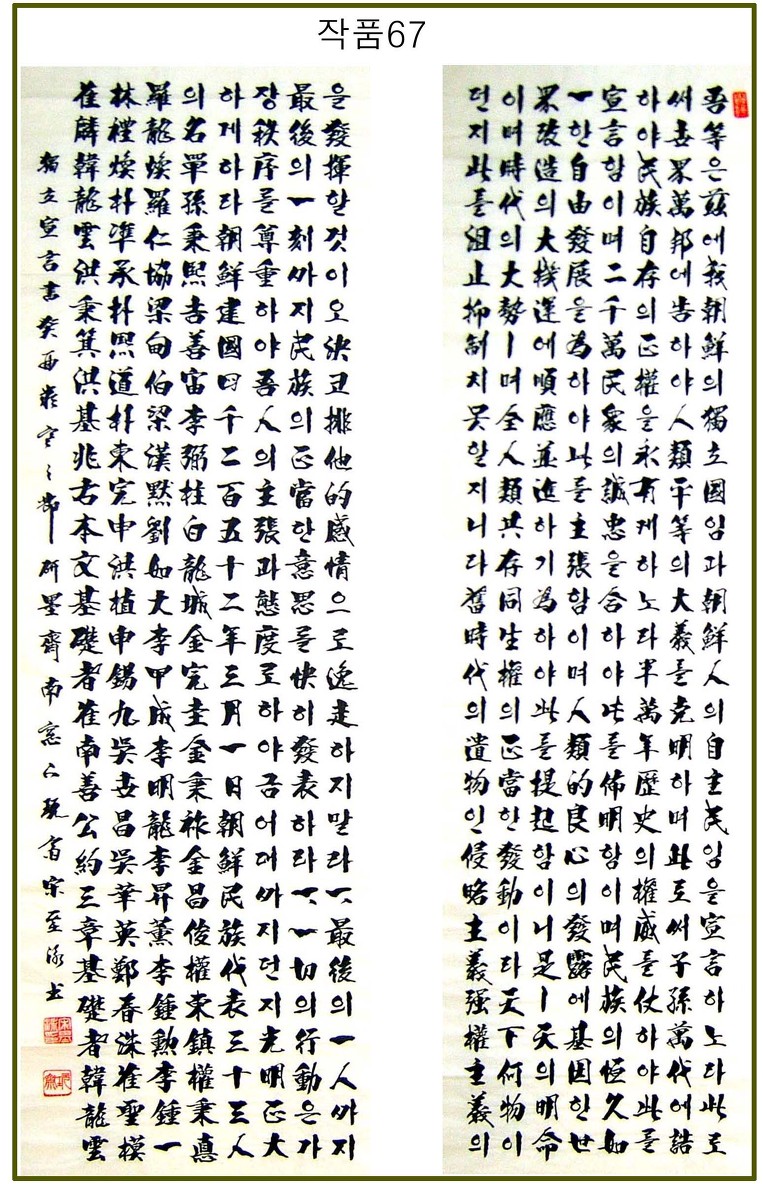 작품67
吾等은玆에我朝鮮의獨立國임과朝鮮人의自主民임을宣言하노라此로
써世界萬邦에告하야人類平等의大義를克明하며此로써子孫萬代에誥
하야民族自存의正權을永有케하노라半萬年歷史의權威를仗하야此를
宣言함이며二千萬民衆의誠忠을合하야此를佈明함이며民族의恒久如
一한自由發展을爲하야此를主張함이며人類的良心의發露에基因한世
界改造의大機運에順應並進하기爲하야此를提起함이니是ㅣ天의明命
이며時代의大勢ㅣ며全人類共存同生權의正當한發動이라天下何物이
던지此를沮止抑制치못할지니라舊時代의遺物인侵略主義强權主義의
을發揮할것이오決코排他的感情으로逸走하지말라一、最後의一人까지
最後의一刻까지民族의正當한意思를快히發表하라一、一切의行動은가
장秩序를尊重하야吾人의主張과態度로하야금어대까지던지光明正大
하게하라朝鮮建國四千二百五十二年三月一日朝鮮民族代表三十三人
의名單孫秉熙吉善宙李弼柱白龍城金完圭金秉祚金昌俊權東鎭權秉悳
羅龍煥羅仁協梁甸伯梁漢默劉如大李甲成李明龍李昇薰李鍾勳李鍾一
林禮煥朴準承朴熙道朴東完申洪植申錫九吳世昌吳華英鄭春洙崔聖模
崔麟韓龍雲洪秉箕洪基兆右本文基礎者崔南善公約三章基礎者韓龍雲
獨立宣言書癸酉嚴寒之節 硏墨齋南窓下